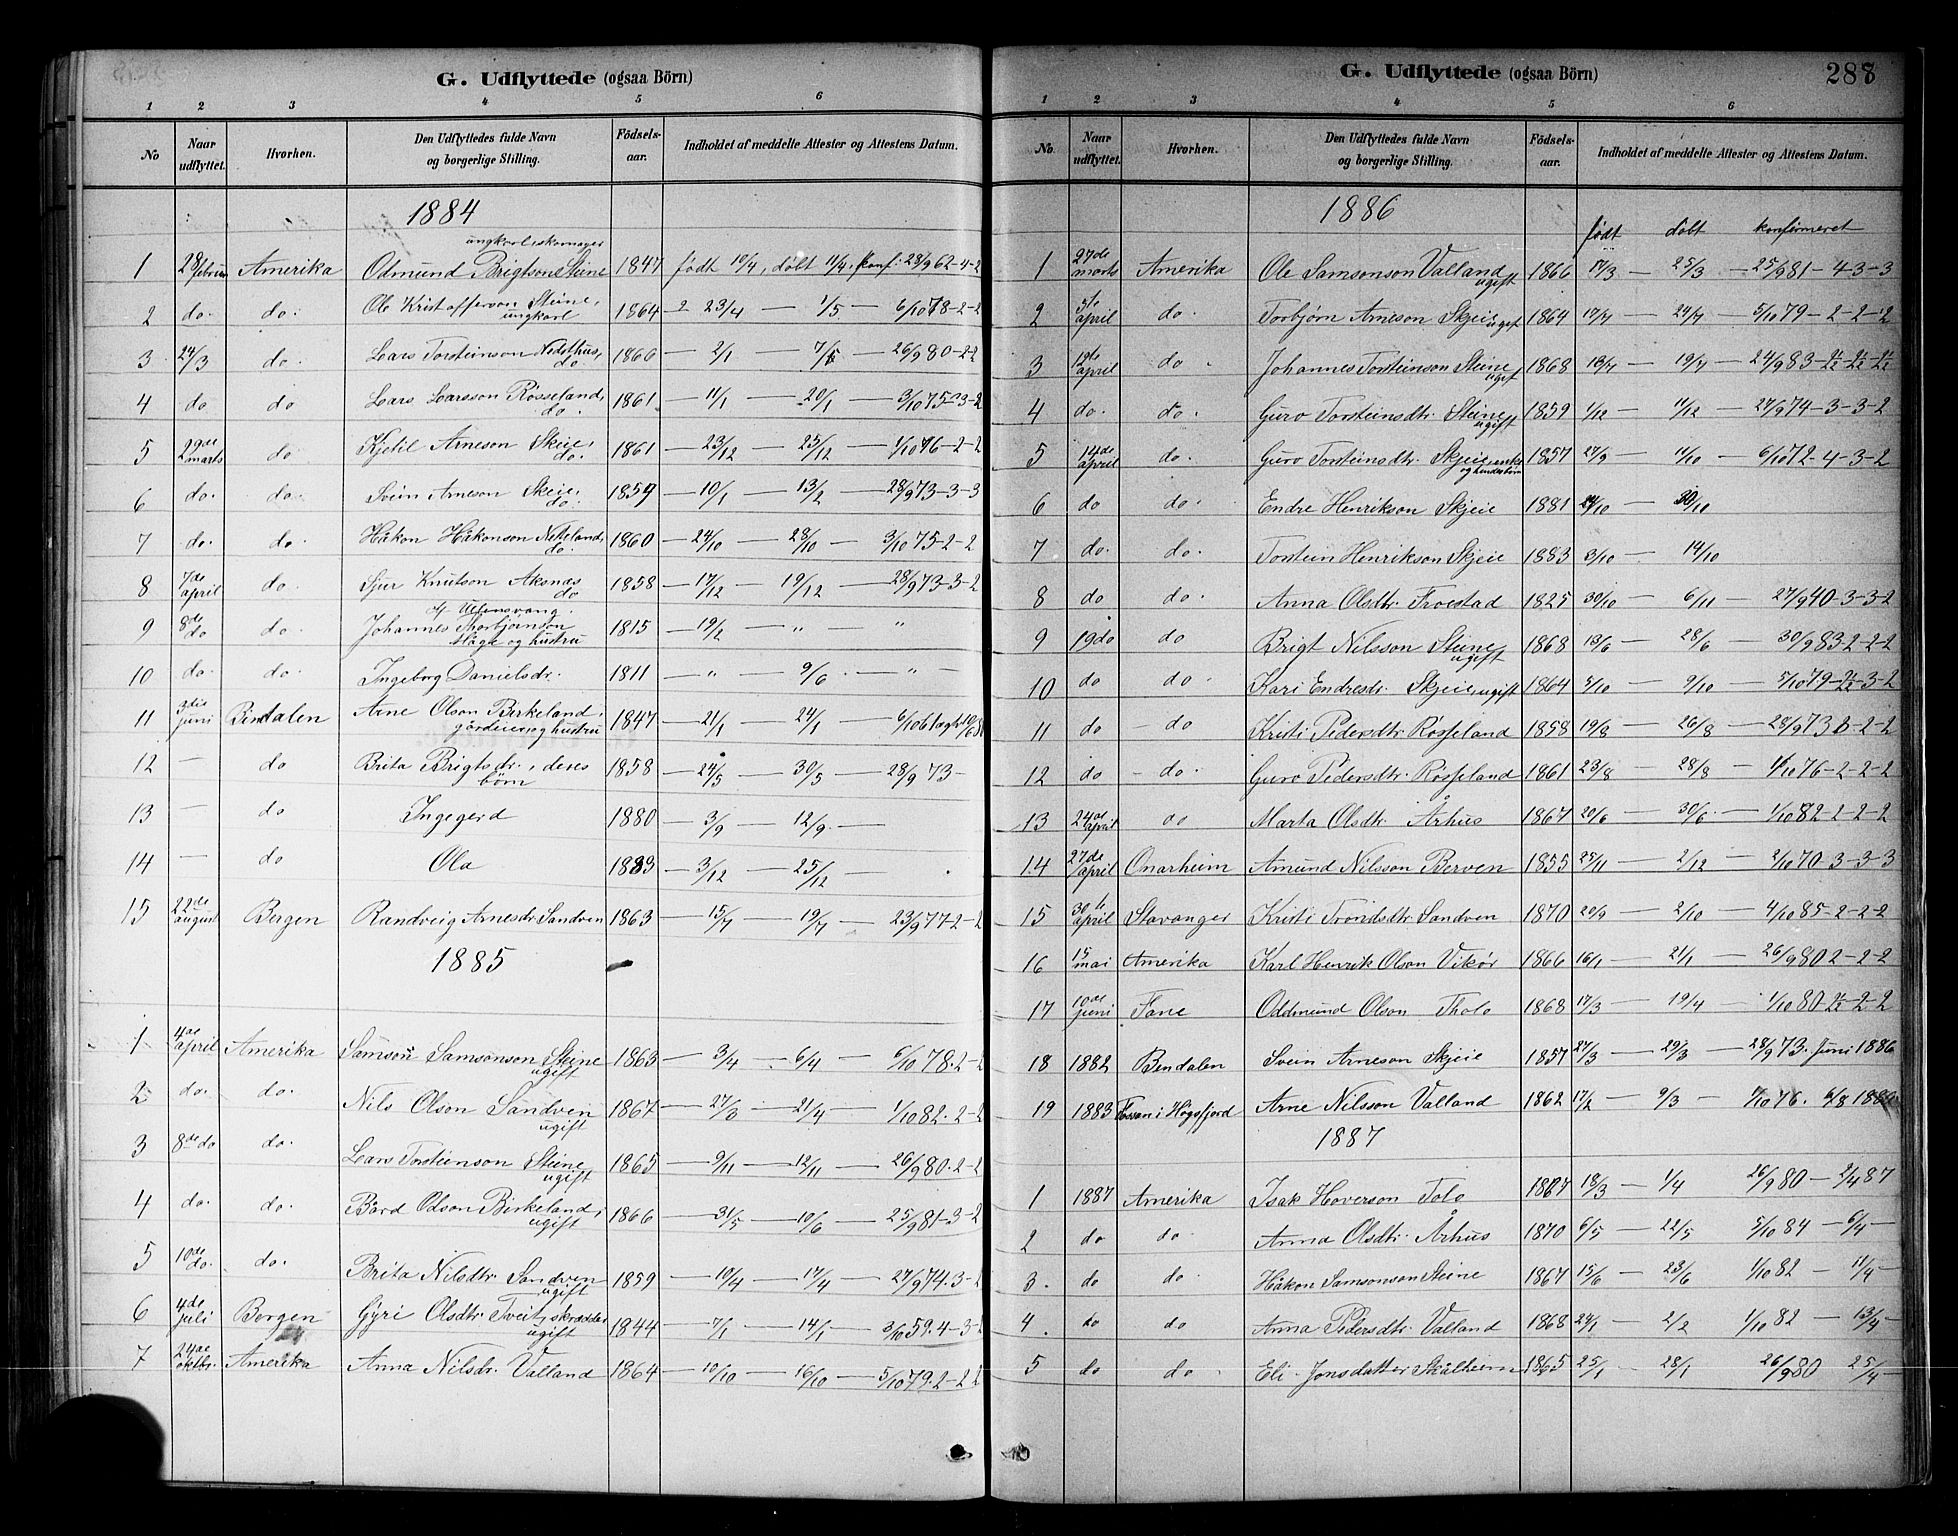 G. Udflyttede (ogsaa Börn)
1 2 3 4 5 6
No Naar udflyttet. Hvorhen. Den Udflyttedes fulde Navn og borgerlige Stilling. Födsels-aar. Indholdet af meddelte Attester og Attestens Datum.
1884
ungkarl, skomager
1 28 februar Amerika Odmund Brigtson Steine 1847 født 10/4, døbt 11/4, konf: 28/9 62-4-2
2 do. do. Ole Kristofferson Steine, ungkarl 1864 23/4 — 1/5 — 6/10 78-2-2
3 24/3 do Lars Torsteinson Nedsthus, do. 1860 — 2/1 — 7/1 — 26/9 80-2-2
4 do do Lars Larsson Røsseland, do. 1861 — 11/1 — 20/1 — 3/10 75-3-2
5 29de marts do Kjetil Arneson Skeie, do. 1861 — 23/12 — 25/12 — 1/10 76-2-2
6 do. do. Svein Arneson Skeie, do. 1859 — 10/1 — 13/2 — 28/9 73-3-3
7 do. do. Håkon Håkonson Netteland, do. 1860 — 24/10 — 28/10 — 3/10 75-2-2
8 7de april do. Sjur Knutson Aksnes do 1858 — 17/12 — 19/12 — 28/9 73-3-2
9 8de do do. Johannes Thorbjørnson og hustru 1815 — 19/2 — " — "
10 do. do. Ingeborg Danielsdr. 1811 — " — 9/6 — " —
11 3die juni Bindalen Arne Olson Birkeland, gårdeier og hustru 1847 — 21/1 — 24/1 — 6/10 61
12 — do Brita Brigtsdr., deres börn 1858 — 24/5 — 30/5 — 28/9 73-
13 — do Ingegerd 1880 — 3/9 — 12/9 —
14 — do Ola 1883 — 3/12 — 25/12 —
15 22de august Bergen Randveig Arnesdr. Sandven 1863 — 15/7 — 19/7 — 23/9 77-2-2
1885
1 4de april Amerika Samson Samsonson Steine ugift 1863 — 3/4 — 6/4 — 6/10 78-2-2
2 do. do. Nils Olson Sandven ugift 1867 — 27/3 — 21/4 — 1/10 82-2-2
3 8de do do. Lars Torsteinson Steine ugift 1865 — 9/11 — 12/11 — 26/9 80-2-2
4 do. do. Bård Olson Birkeland, ugift 1866 — 31/5 — 10/6 — 25/9 81-3-2
5 10de do. do. Brita Nilsdtr. Sandven ugift 1859 — 10/4 — 17/4 — 27/9 74.3-2
6 4de juli Bergen Gyri Olsdtr. Tveit, skrædder ugift 1844 — 7/1 — 14/1 — 3/10 59.4-3-2
7 24de oktbr. Amerika Anna Nilsdr. Valland 1864 — 10/10 — 16/10 — 5/10 79.2-2
G. Udflyttede (ogsaa Börn) 287
1 2 3 4 5 6
No. Naar udflyttet. Hvorhen. Den Udflyttedes fulde Navn og borgerlige Stilling. Födsels-aar. Indholdet af meddelte Attester og Attestens Datum.
1886
født døbt konfirmeret
1 27de marts Amerika Ole Samsonson Valland ugift 1866 17/3 — 25/3 — 25/9 81-4-3-3
2 april do. Torbjørn Arneson Skjeie ugift 1864 17/7 — 24/7 — 5/10 79-2-2-2
3 april do. Johannes Torsteinson Steine ugift 1868 13/7 — 19/7 — 24/9 83
4 do. do. Guro Torsteinsdtr. Steine ugift 1859 1/12 — 11/12 — 27/9 74-3-3-2
5 14de april do. Guro Torsteinsdtr. Skjeie, enke og hendes børn 1857 27/9 — 11/10 — 6/10 72-4-3-2
6 do do. Endre Henrikson Skjeie 1881 24/10 — 30/10
7 do. do. Torstein Henrikson Skjeie 1883 3/10 — 14/10
8 do do. Anna Olsdtr. Froestad 1825 30/10 — 6/11 — 27/9 40-3-3-2
9 19 do do Brigt Nilsson Steine ugift 1868 13/6 — 28/6 — 30/9 83-2-2-2
10 do do. Kari Endresdr. Skjeie, ugift 1864 5/10 — 9/10 — 5/10 79-2½-3-2
11 do — do Kristi Pedersdtr. Røsseland 1858 19/8 — 26/8 — 28/9 73
12 do — do. Guro Pedersdtr. Røsseland 1861 23/8 — 28/8 — 1/10 76-2-2-2
13 24de april do Marta Olsdtr. Århus 1867 20/6 — 30/6 — 1/10 82-2-2-2
14 27de april Onarheim Amund Nilsson Berven 1855 25/11 — 2/12 — 2/10 70-3-3-3
15 30te april Stavanger Kristi Trondsdtr. Sandven 1870 20/9 — 2/10 — 4/10 85-2-2-2
16 15 mai Amerika Karl Henrik Olson Vikør 1866 16/1 — 21/1 — 26/9 80 2-2-2
17 10de juni Fane Oddmund Olson Tholo 1868 17/3 — 19/4 — 1/10 80-2½-2-2
18 1882 Bindalen Svein Arneson Skjeie 1857 27/3 — 29/3 — 28/9 73. Juni 1886
19 1883 Fossan i Høgsfjord Arne Nilsson Valland 1862 17/2 — 9/3 — 1/10 76. 6/8 1886
1887
1 1887 Amerika Isak Hoverson Tolo 1867 18/3 — 1/4 26/9 80 — 2/4 87
2 do do. Anna Olsdtr. Århus 1870 6/5 — 22/5 5/10 84 — 6/4 —
3. do do. Håkon Samsonson Steine 1867 15/6 — 23/6 1/10 82 — 11/4 —
4. do do Anna Pedersdtr. Valland 1868 24/1 — 2/2 1/10 82 — 13/4 —
5 do do. Eli Jonsdatter Skålheim 1865 25/1 — 28/1 26/9 80 25/4 —